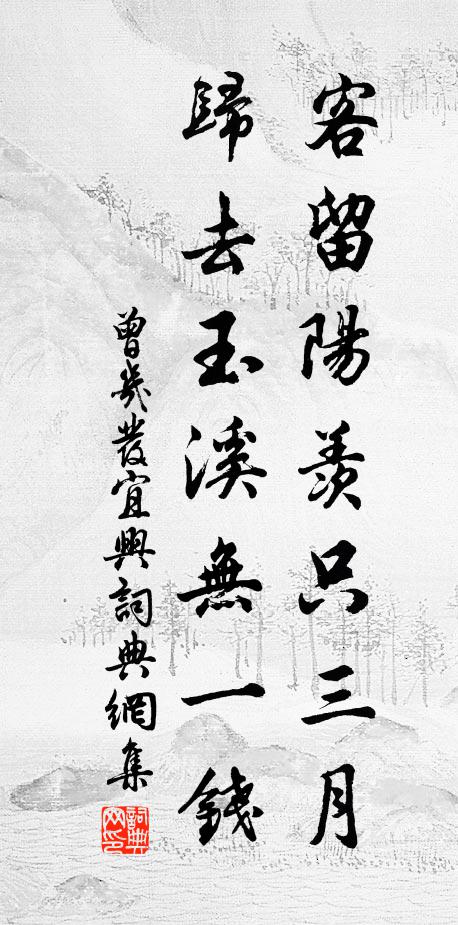 客留陽羨只三月
歸去玉溪無一錢
曾幾發宜興詞典網集
詞典
网印